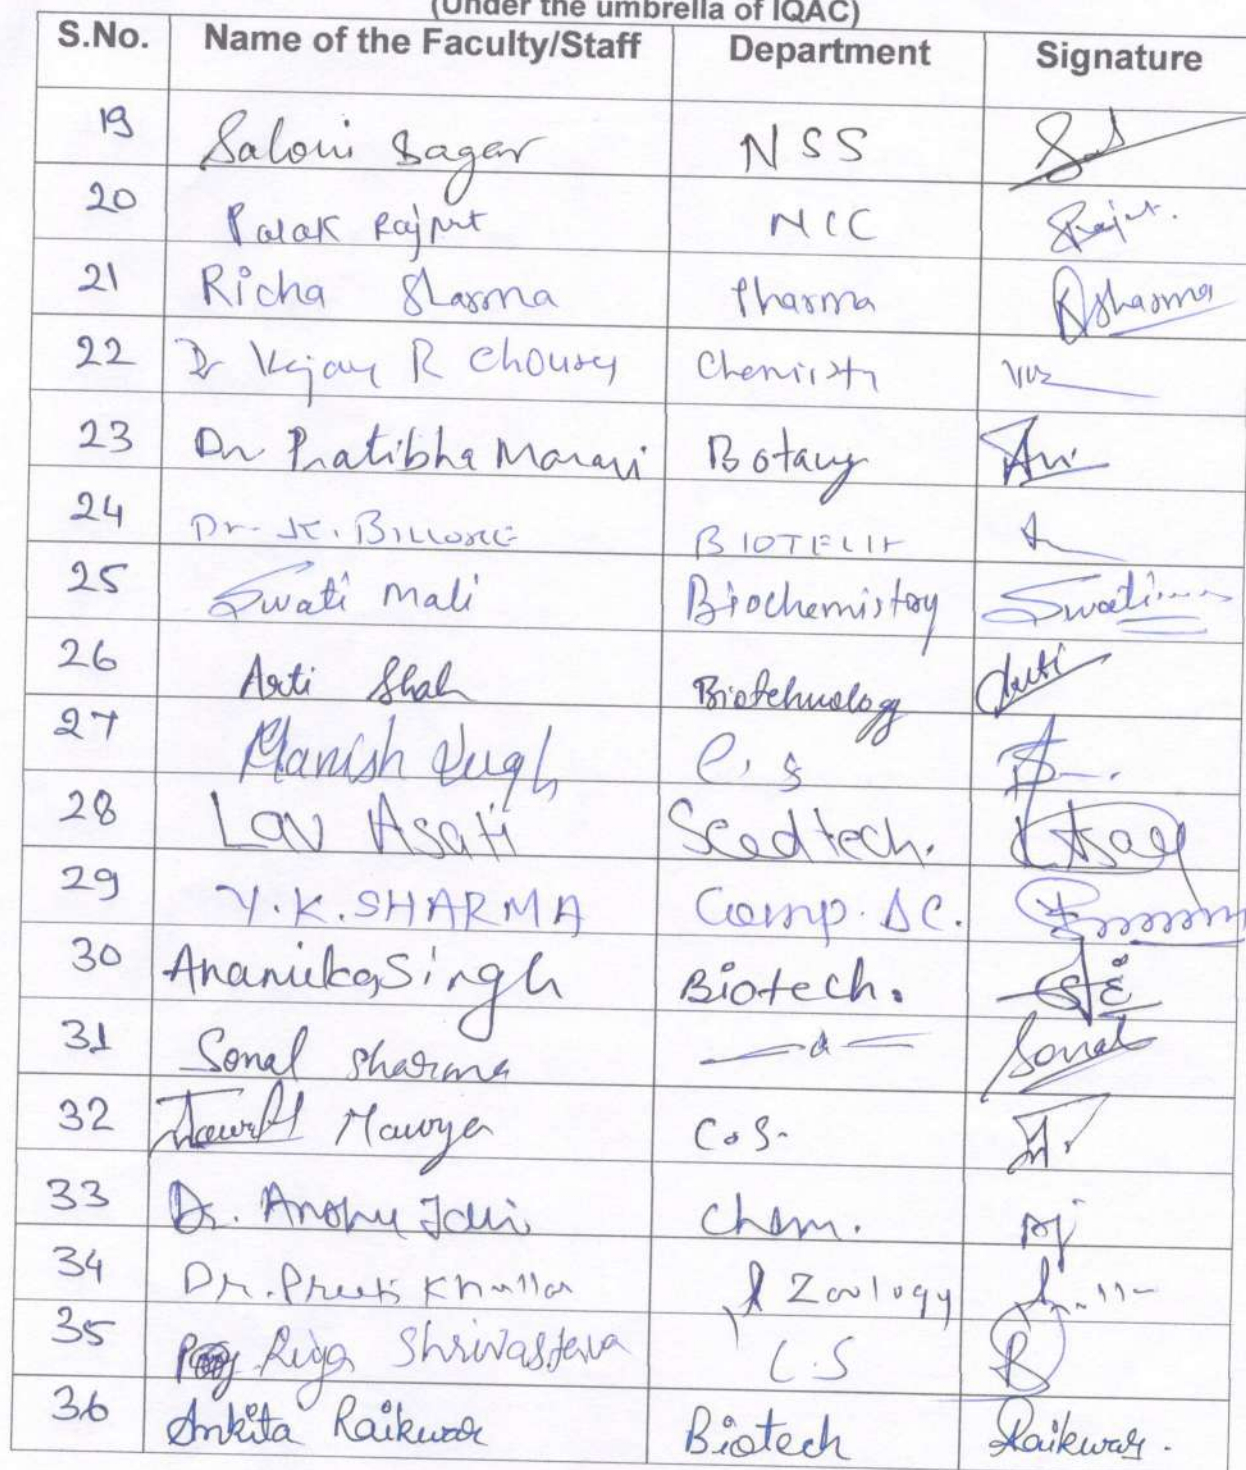 (Under the umbrella of IQAC)
S.No. Name of the Faculty/Staff Department Signature
19 Saloni Sagar NSS
20 Palak Rajput NCC Rajput.
21 Richa Sharma Pharma RSharma
22 Dr Vijay R Chourey Chemistry
23 Dr Pratibha Maravi Botany
24 Dr. K. BILLORE BIOTECH
25 Swati Mali Biochemistry Swati
26 Arti Shah Biotehnology Arti
27 Manish C.S
28 Lav Asati Seedtech.
29 Y.K. SHARMA Comp. Sc.
30 Anamika Singh Biotech.
31 Sonal Sharma Sonal
32 Maurya C.S.
33 Dr. Anshu Jain Chem. Aj
34 Dr. Preeti Khullar Zoology
35 Riya Shrivastava C.S R
36 Ankita Raikwar Biotech Raikwar.